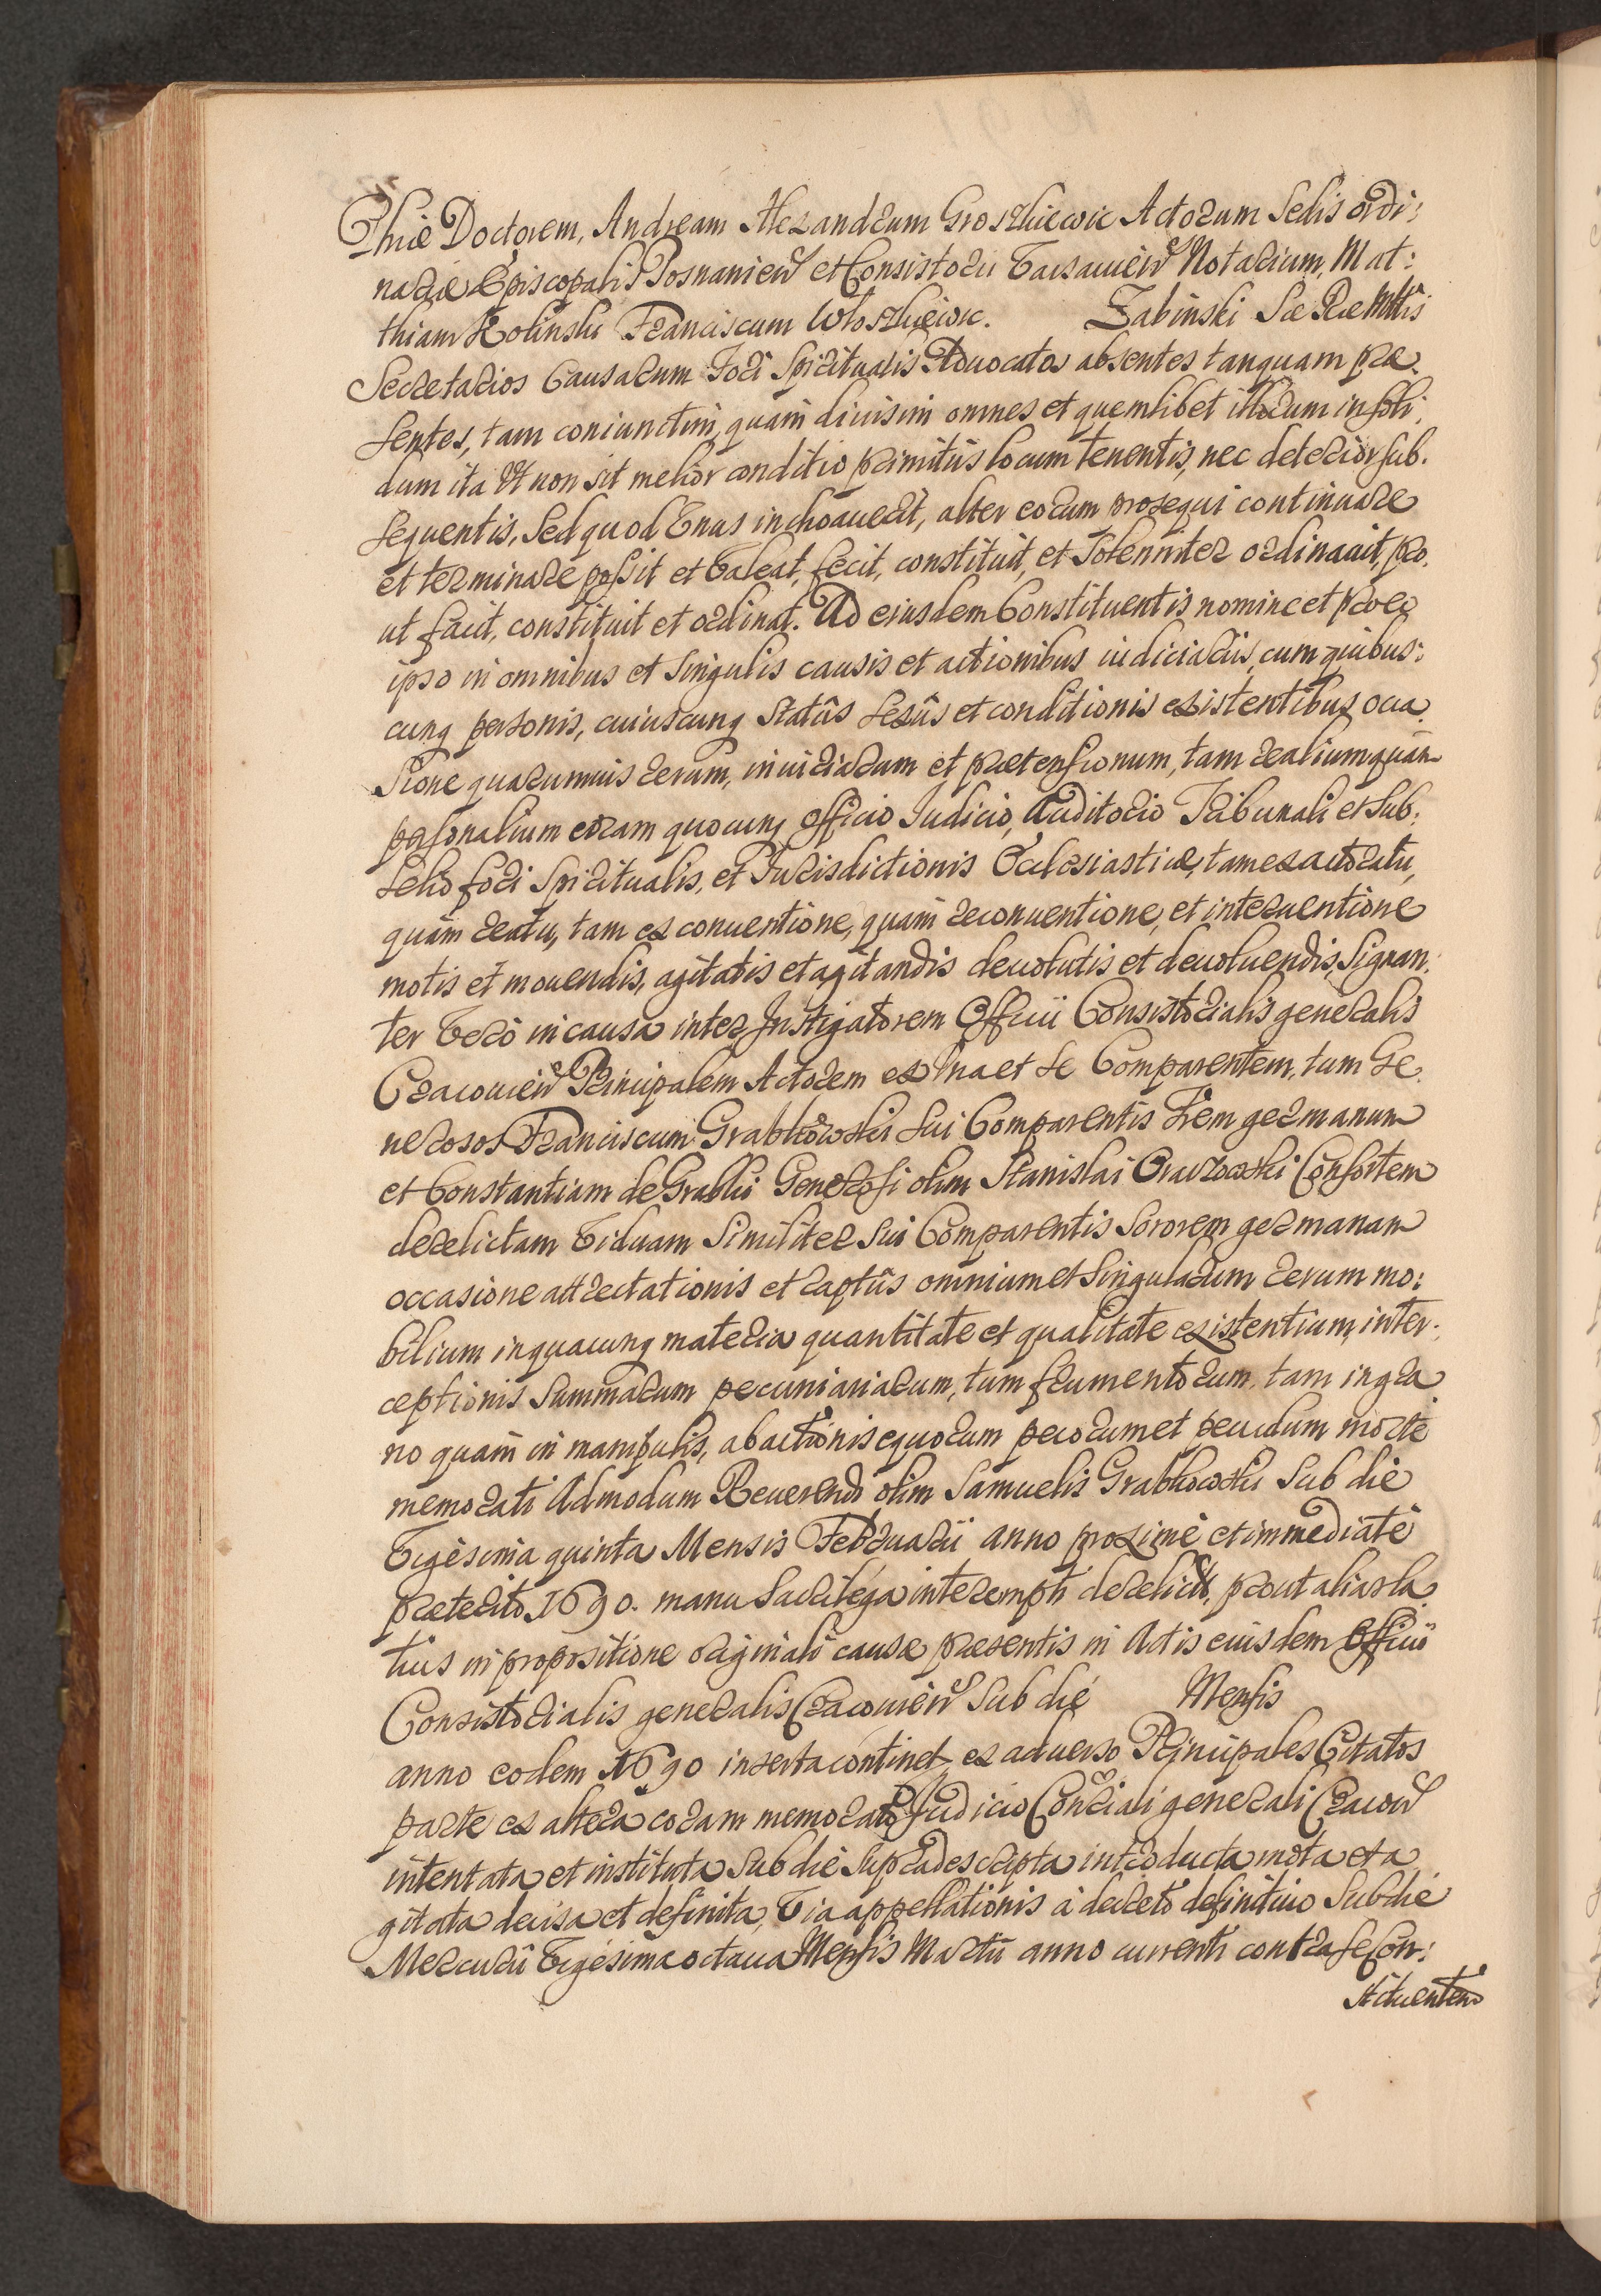 Phiæ Doctorem, Andream Alexandrum Groszkiewic Actorum Sedis ordi:
nariæ Episcopalis Posnanien et Consistorii Varsavien Notarium, Mat:
thiam Kolinski Franciscum Wloszkiewic. Zabinski Sæ Ræ Mttis
Secretarios Causarum Fori Spiritualis Advocatos absentes tanquam præ:
sentes, tam coniunctim, quam divisim omnes et quemlibet illorum in soli:
dum ita Ut non sit melior conditio primitus locum tenentis, nec deterior sub:
sequentis, Sed quod Unus inchoaverit, alter eorum prosequi continuare
et terminare possit et Valeat, fecit, constituit, et Solenniter ordinavit, pro:
ut facit, constituit et ordinat. Ad eiusdem Constituentis nomine et pro eo
ipso in omnibus et singulis causis et actionibus iudiciariis cum quibus:
cunq personis, cuiuscunq Statûs Sexûs et conditionis existentibus occa:
sione quarumvis rerum, iniuriarum et prætensionum, tam realium quam
personalium coram quocunq Officio Iudicio, Auditorio Tribunali et Sub:
selio fori Spiritualis, et Jurisdictionis Ecclesiasticæ, tam ex actoratu,
quam reatu, tam ex conventione, quam reconventione, et interventione
motis et movendis, agitatis et agitandis devolutis et devolvendis, Signan:
ter Verò in causa inter Instigatorem Officii Consistorialis generalis
Cracovien Principalem Actorem ex Una et Se Comparentem, tum Ge:
nerosos Franciscum Grabkowski sui Comparentis Frem germanum
et Constantiam de Grabki Generosi olim Stanislai Consortem
derelictam Viduam Similiter sui Comparentis Sororem germanam
occasione attrectationis et raptûs omnium et singularum rerum mo:
bilium in quacunq materia quantitate et qualitate existentium, inter:
ceptionis Summarum pecuniariarum, tum frumentorum, tam in gra
no quam in manipulis, abactionis equorum pecorum et pecudum morte
memorati Admodum Reverendi olim Samuelis Grabkowski Sub die
Vigesima quinta Mensis Februarii anno proximè et immediatè
præterito 1690. manu Sacrilega interempti derelict, prout alias la
tius in propositione originali causæ præsentis in Actis eiusdem Officii
Consistorialis generalis Cracovien Sub die Mensis
anno eodem 1690 inserta continet ex adverso Principales Citatos
parte ex altera coram memorato Judicio Conriali generali Cracovi
intentata et instituta Sub die Supradescripta introducta mota et a
gitata decisa et definita, Via appellationis à decreto definitivo Sub die
Mercurii Vigesima octava Mensis Martii anno currenti contra se Con:
stituentem